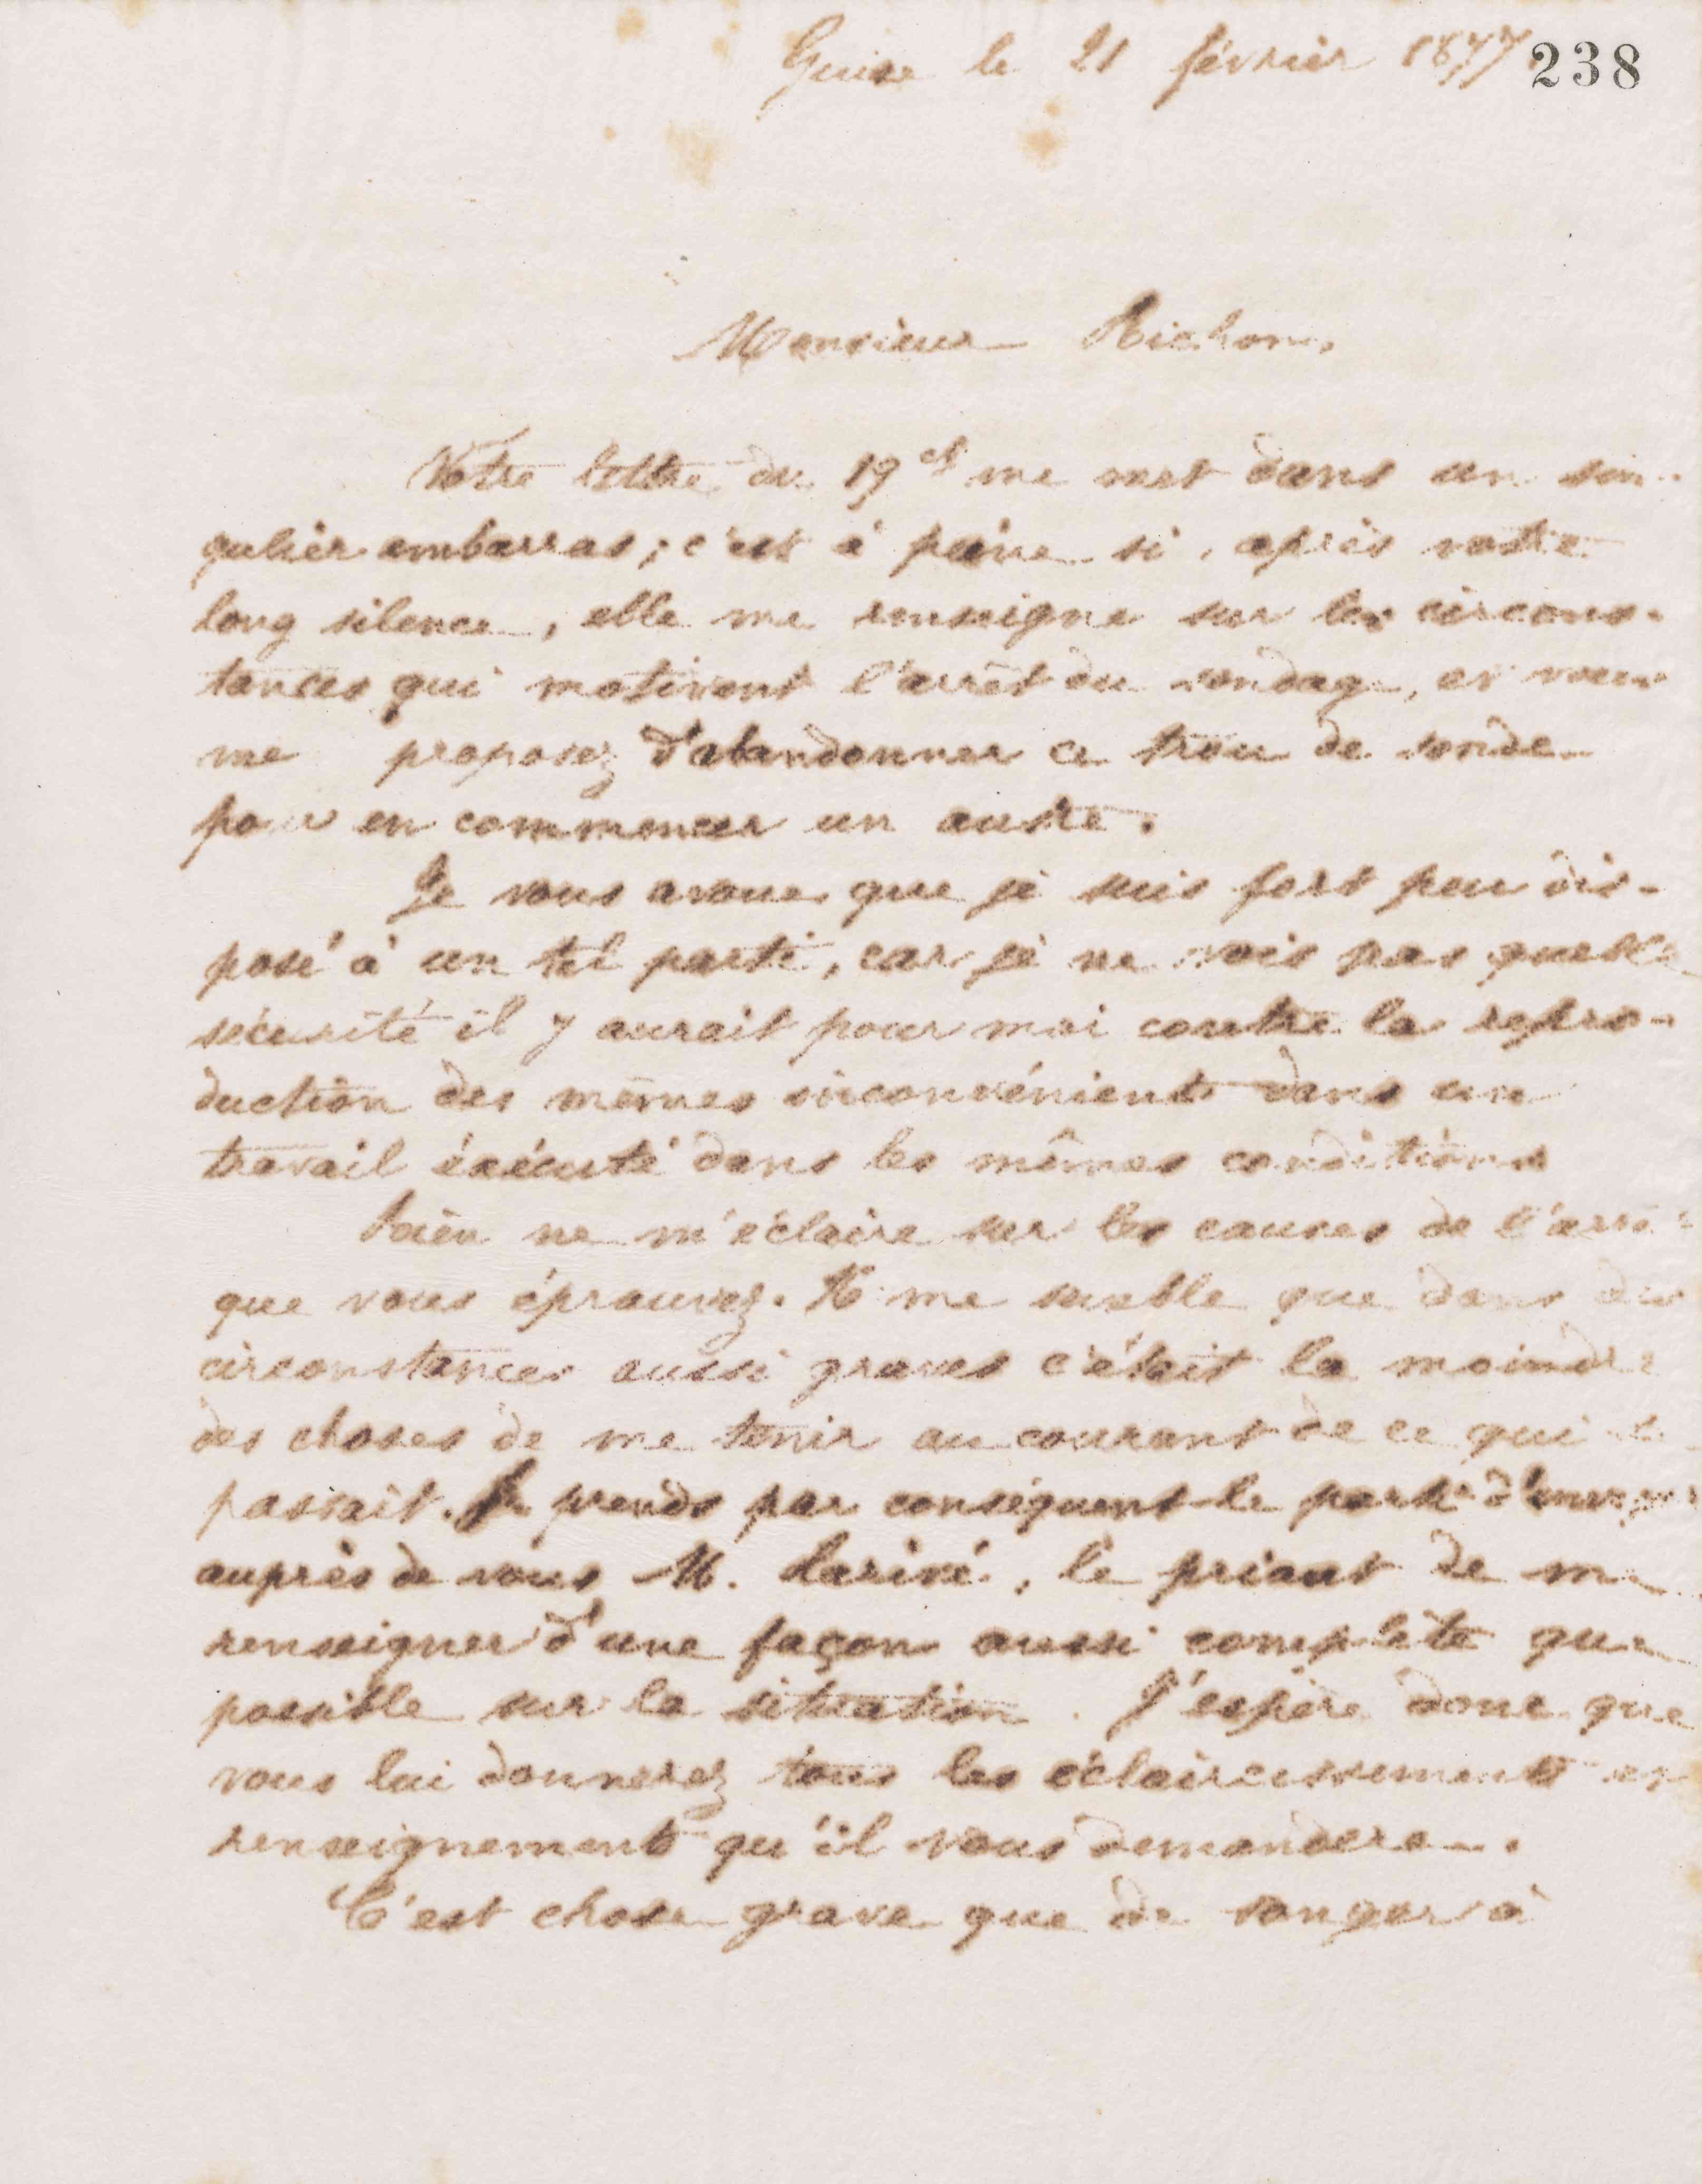 Guise le 21 février 1877
238
Monsieur Richon,
Votre lettre du 19 ct me met dans un sin-
gulier embarras; c'est à peine si, après votre
long silence, elle me renseigne sur les circons-
tances qui motivent l'arrêt du sondage, et vous
me proposez d'abandonner ce trou de sonde
pour en commencer un autre.
Je vous avoue que je suis fort peu dis-
posé à un tel parti, car je ne vois pas quelle
sécurité il y aurait pour moi contre la repro-
duction des mêmes inconvénients dans un
travail éxécuté dans les mêmes conditions
Rien ne m'éclaire sur les causes de l'arrêt
que vous éprouvez. Il me semble que dans des
circonstances aussi graves c'était la moindre
des choses de me tenir au courant de ce qui se
passait. Je prends par conséquent le parti d'envoyer
auprès de vous M. Larivé, le priant de me
renseigner d'une façon aussi complète que
possible sur la situation. J'espère donc que
vous lui donnerez tous les éclaircissements et
renseignements qu'il vous demandera.
C'est chose grave que de songer à